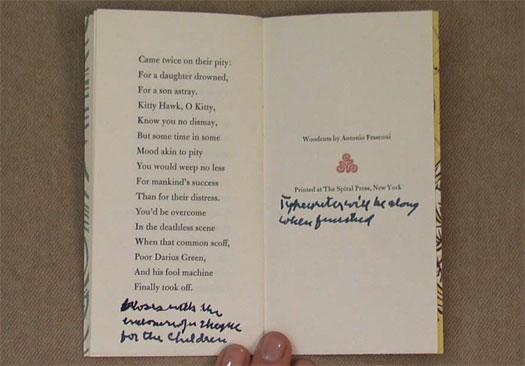 Came twice on their pity:
For a daughter drowned,
For a son astray.
Kitty Hawk, O Kitty,
Know you no dismay,
But some time in some
Mood akin to pity
You would weep no less
For mankind's success
Than for their distress.
You'd be overcome
In the deathless scene
When that common scoff,
Poor Darius Green,
And his fool machine
Finally took off.
with the
for the children
Woodcuts by Antonio Frasconi
Printed at The Spiral Press, New York
Typewriter will be along
when finished